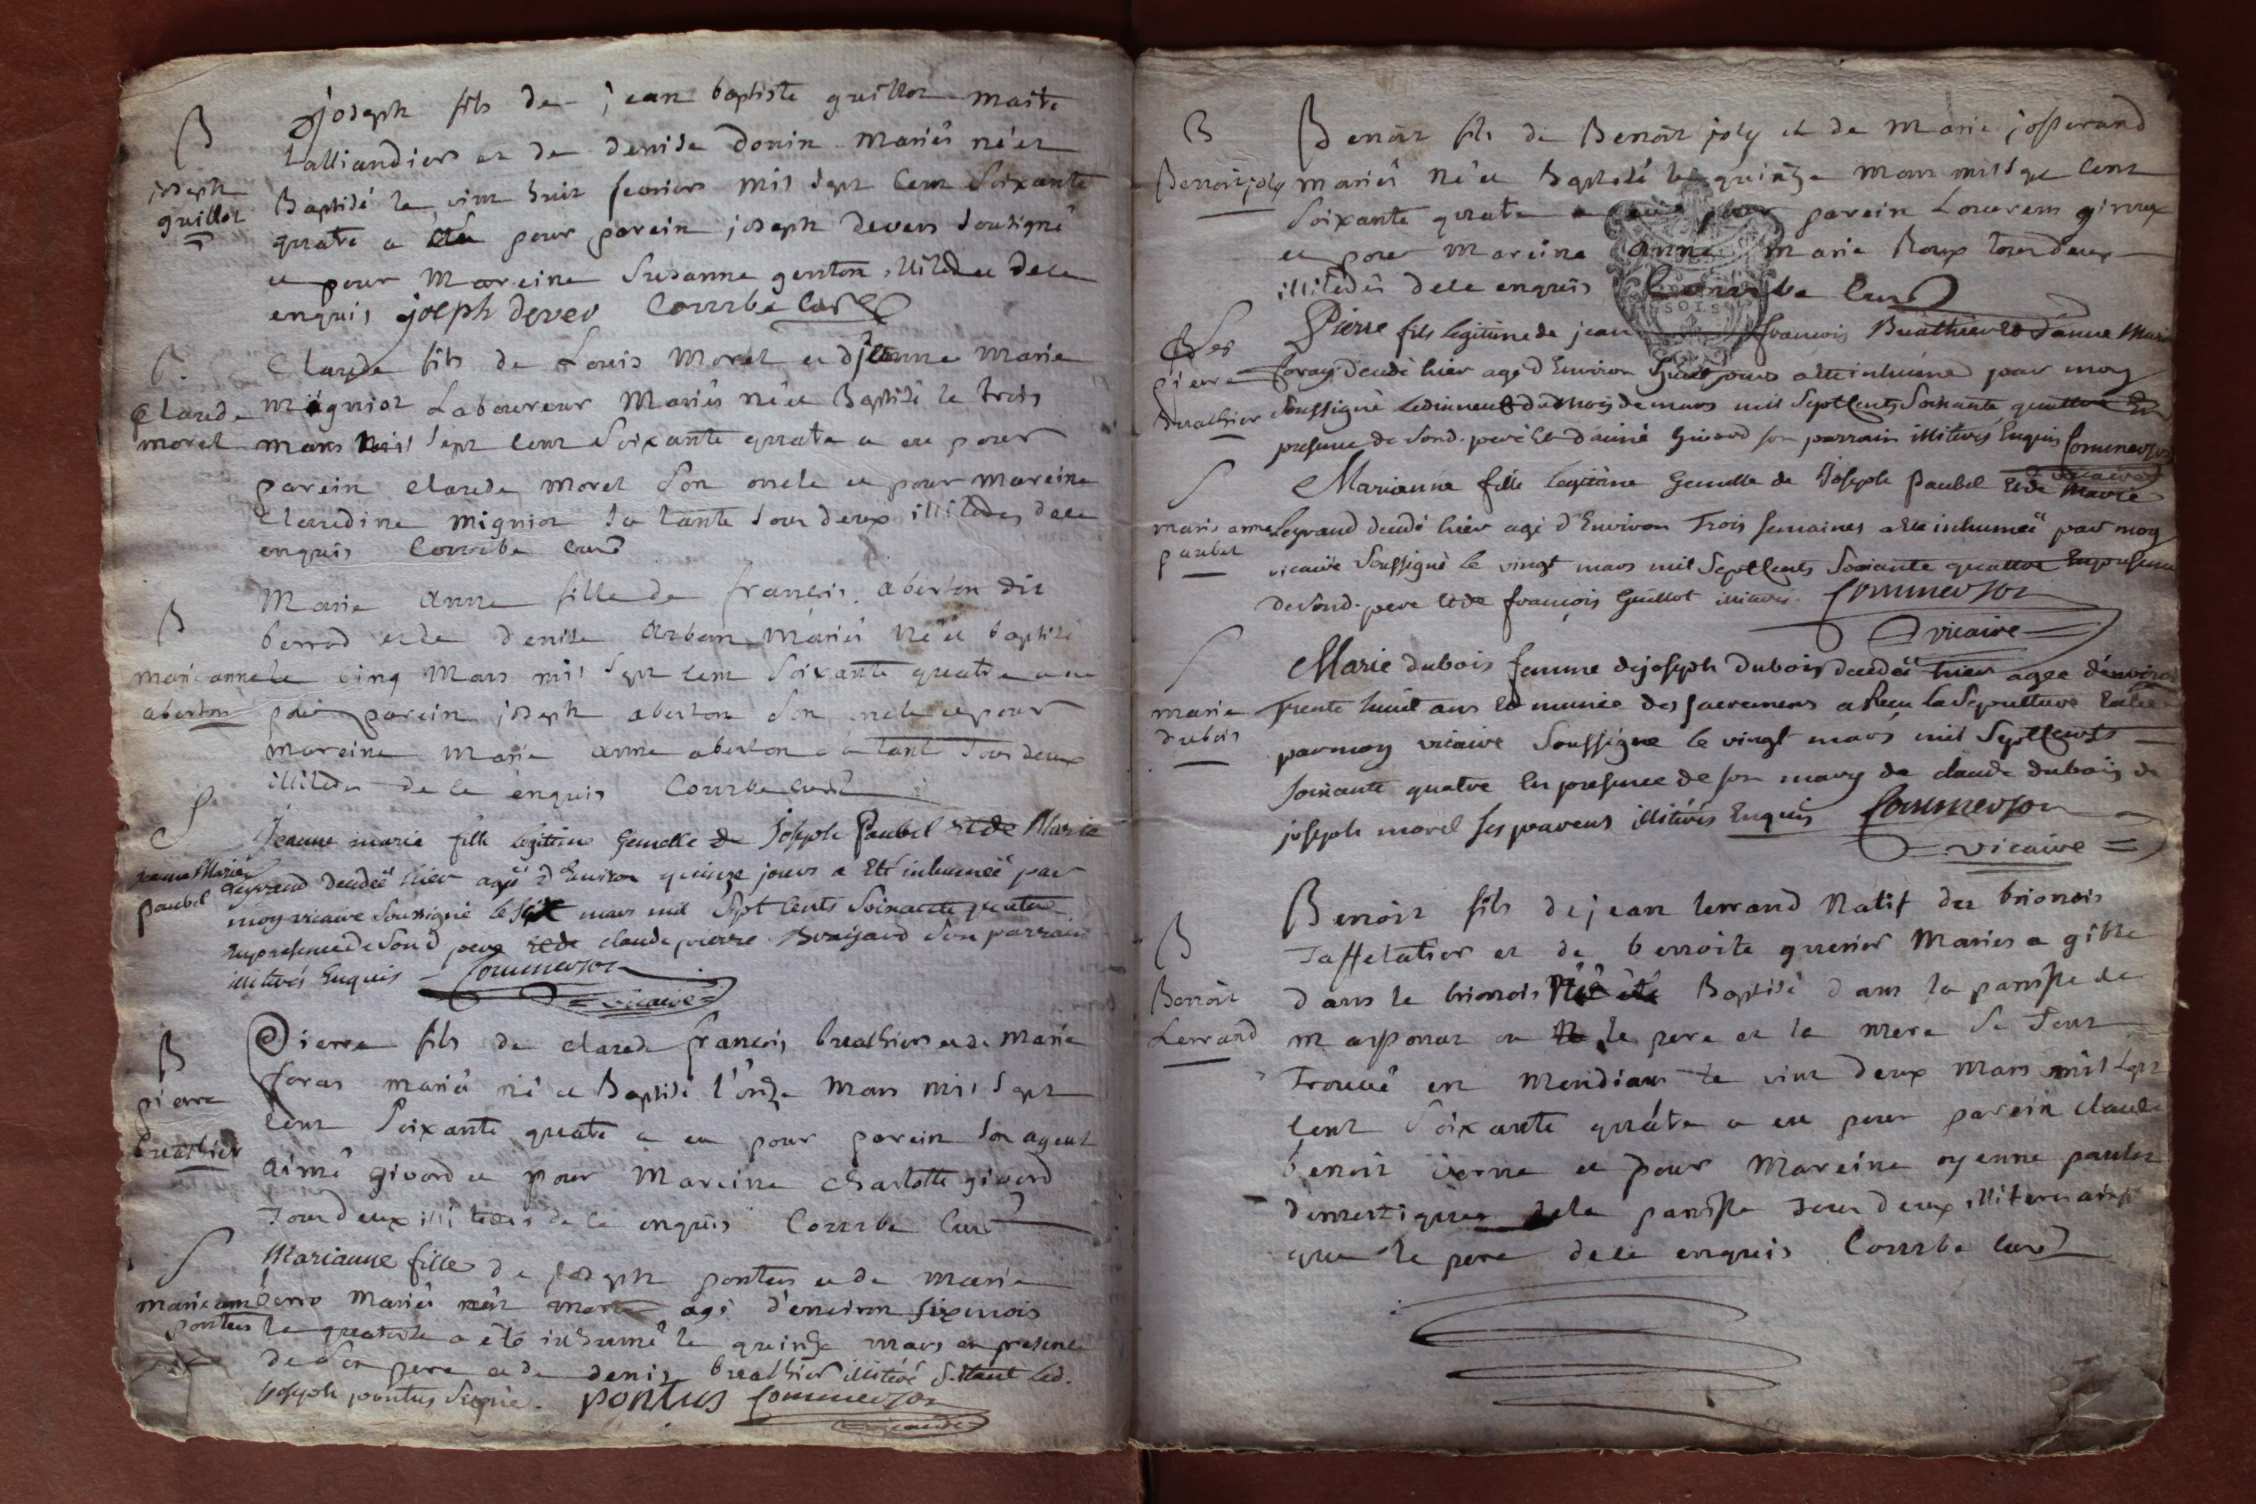 B
joseph
guillot
joseph fils de jean baptiste guillot maitre
talliandiers et de denise donin mariés né et
Baptisé le vint huit fevriers mil sept cent soixante
quatre a eu pour parein joseph devers sousigné
et pour mareine Susanne genton
enquis joseph dever Courrbe curé
Claude
morel
Claude fils de Louis morel et de jeanne marie
mignot Laboureur mariés né et Baptisé le trois
mars mil sept cent soixante quatre a eu pour
parein claude morel son oncle et pour mareine
claudine mignot sa tante tous deux illiterés de ce
enquis Courrbe curé
B
marie anne
aberton
Marie anne fille de françois aberton dit
berrod et de denise mariés né et baptisé
le cinq mars mil sept cent soixante quatre a eu
pour parein joseph aberton son oncle et pour
mareine marie anne aberton sa tante tous deux
illiterés de ce enquis Courrbe curé
S
jeanne Marie
paubel
Jeanne marie fille legitime Gemelle de Joseph Paubel et de Marie
Legrand decedeé hier ageé d'Environ quinze jours a Eté inhumeé par
moy vicaire Soussigné le sept mars mil Sept Cents Soixante quatre
En presence de Son d. pere et de claude pierre Son parrain
illiterés Enquis Commerson
vicaire
B
pierre
buathier
Pierre fils de claude françois buathiers et de marie
foras mariés né et Baptisé l'onze mars mil sept
cent soixante quatre a eu pour parein son ageul
aimé givord et pour mareine charlotte givord
tous deux illiterés de ce enquis Courrbe curé
S
marie anne
pontus
Marianne fille de joseph pontus et de marie
mariés agé d'environ six mois
a été inhumé le quinze mars en presence
de son pere et de denis buathier illitéré
joseph pontus signé. pontus Commerson
vicaire
B
Benoit joly
Benoit fils de Benoit joly et de marie josserand
mariés né et Baptisé le quinze mars mil sept cent
soixante quatre a eu pour parein Laurens giroux
et pour mareine anne marie Roux tous deux
illiterés de ce enquis Courrbe curé
pierre
buathier
Pierre fils legitime de jean françois Buathier et d'anne Marie
foray decedé hier agé d'Environ huit jours a été inhumé par moy
Soussigné le dixneuf du mois de mars mil Sept Cents Soixante quattre En
presence de Son d. pere Et d'aimé Givord son parrain illiterés Enquis Commerson
vicaire
S
marie anne
paubel
Marianne fille legitime Gemelle de Joseph Paubel et de Marie
Legrand decedé hier agé d'Environ Trois semaines a Eté inhumeé par moy
vicaire Soussigné le vingt mars mil Sept Cents Soixante quattre En presence
de Son d. pere et de françois Guillot illiterés Commerson
vicaire
S
marie
dubois
Marie dubois femme de joseph dubois decedeé hier agée d'environ
Trente huit ans et munie des sacremens a Reçu la Sepulture
par moy vicaire Soussigné le vingt mars mil Sept Cents
soixante quatre En presence de son mary de claude dubois de
joseph morel ses parens illiterés Enquis Commerson
vicaire
B
Benoit
Lerrand
Benoit fils de jean lerrand Natif des brionois
Taffetatier et de benoite mariés a gibles
dans le brionois Né Baptisé dans la parroisse de
ou le pere et la mere se sont
Trouvé en le vint deux mars mil sept
cent soixante quatre a eu pour parein claude
benoit verne et pour mareine
domestiques de la parroisse tous deux illiterés ainsi
que le pere de ce enquis Courrbe curé